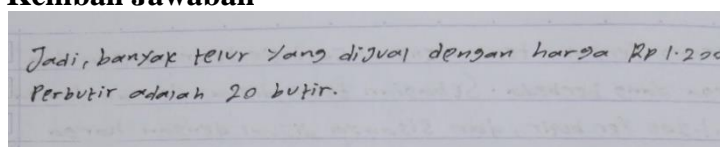 Kembali Jawaban
Jadi, banyak telur yang dijual dengan harga Rp 1.200
Perbutir adalah 20 butir.